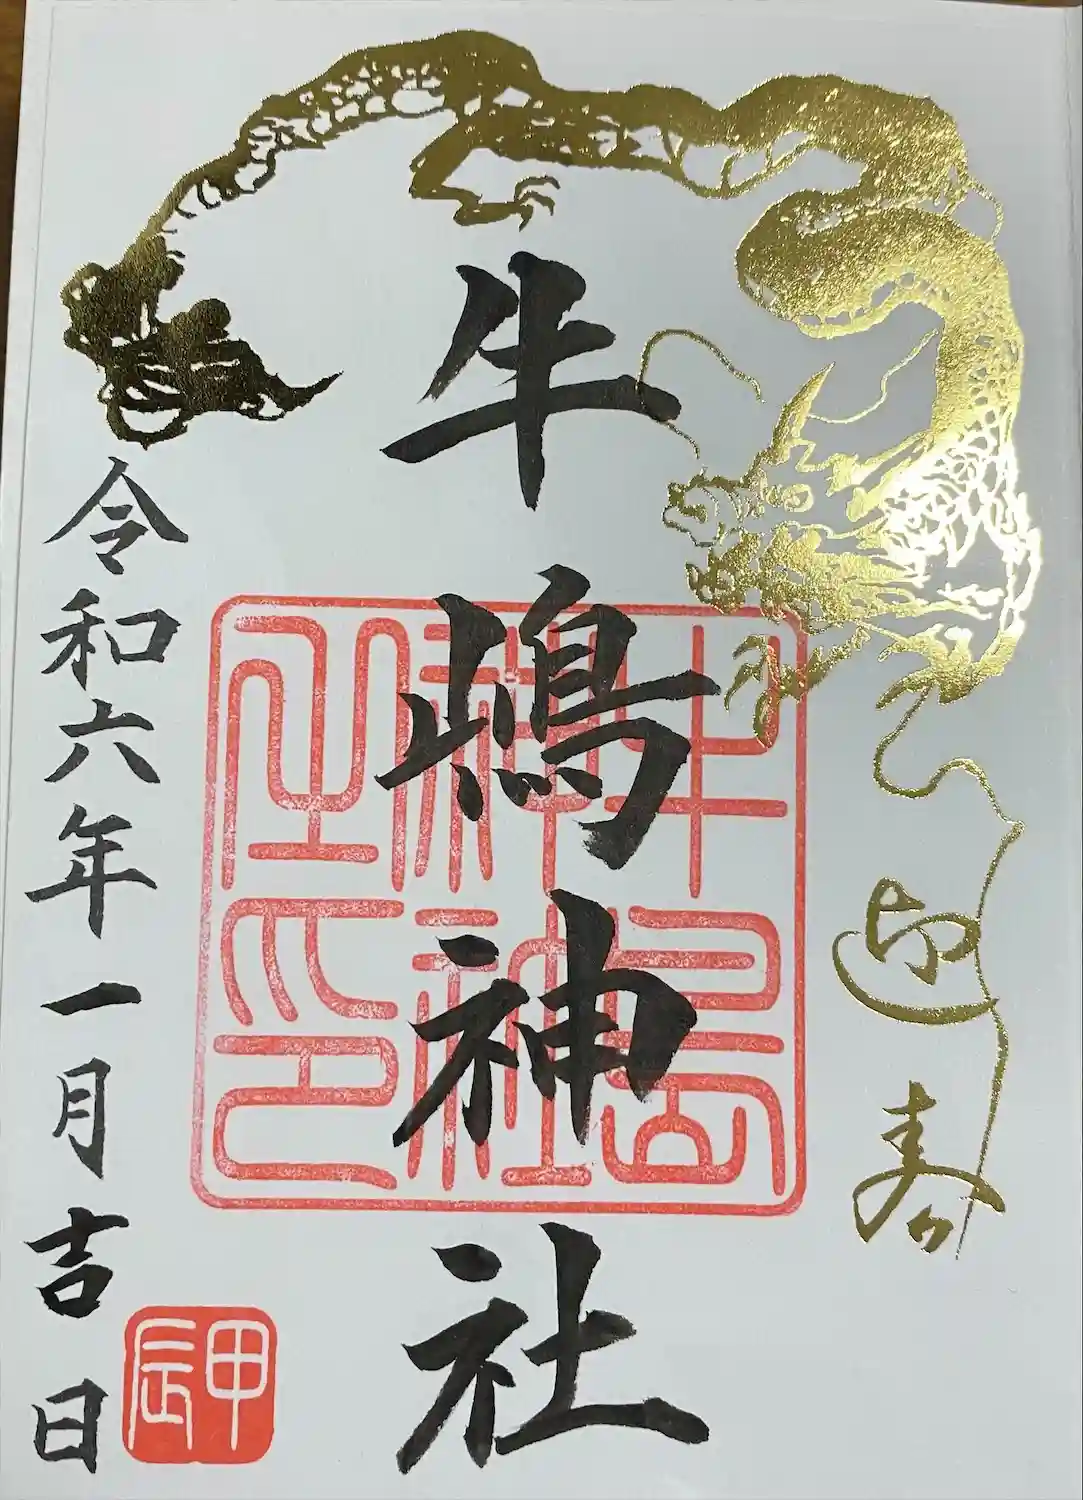 迎春
牛嶋神社
牛島
神社
之印
令和六年一月吉日
甲辰